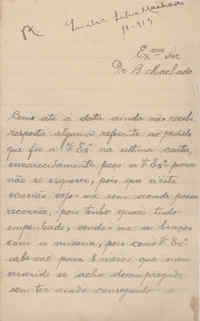 R. Emilia Silva Machado
11-919
Ex.mo Snr
Dr B. Machado
Como até á data ainda não recebi
resposta alguma referente ao pedido
que fiz a V. Exª na ultima carta,
encarecidamente peço a V. Exª para
não se esquecer, pois que n'esta
ocasião vejo-me sem aonde possa
recorrer, pois tenho quasi tudo
empenhado, vendo-me a braços
com a miseria, pois como V. Exª
sabe vae para 6 mezes que meu
marido se acha desempregado
sem ter ainda conseguido a